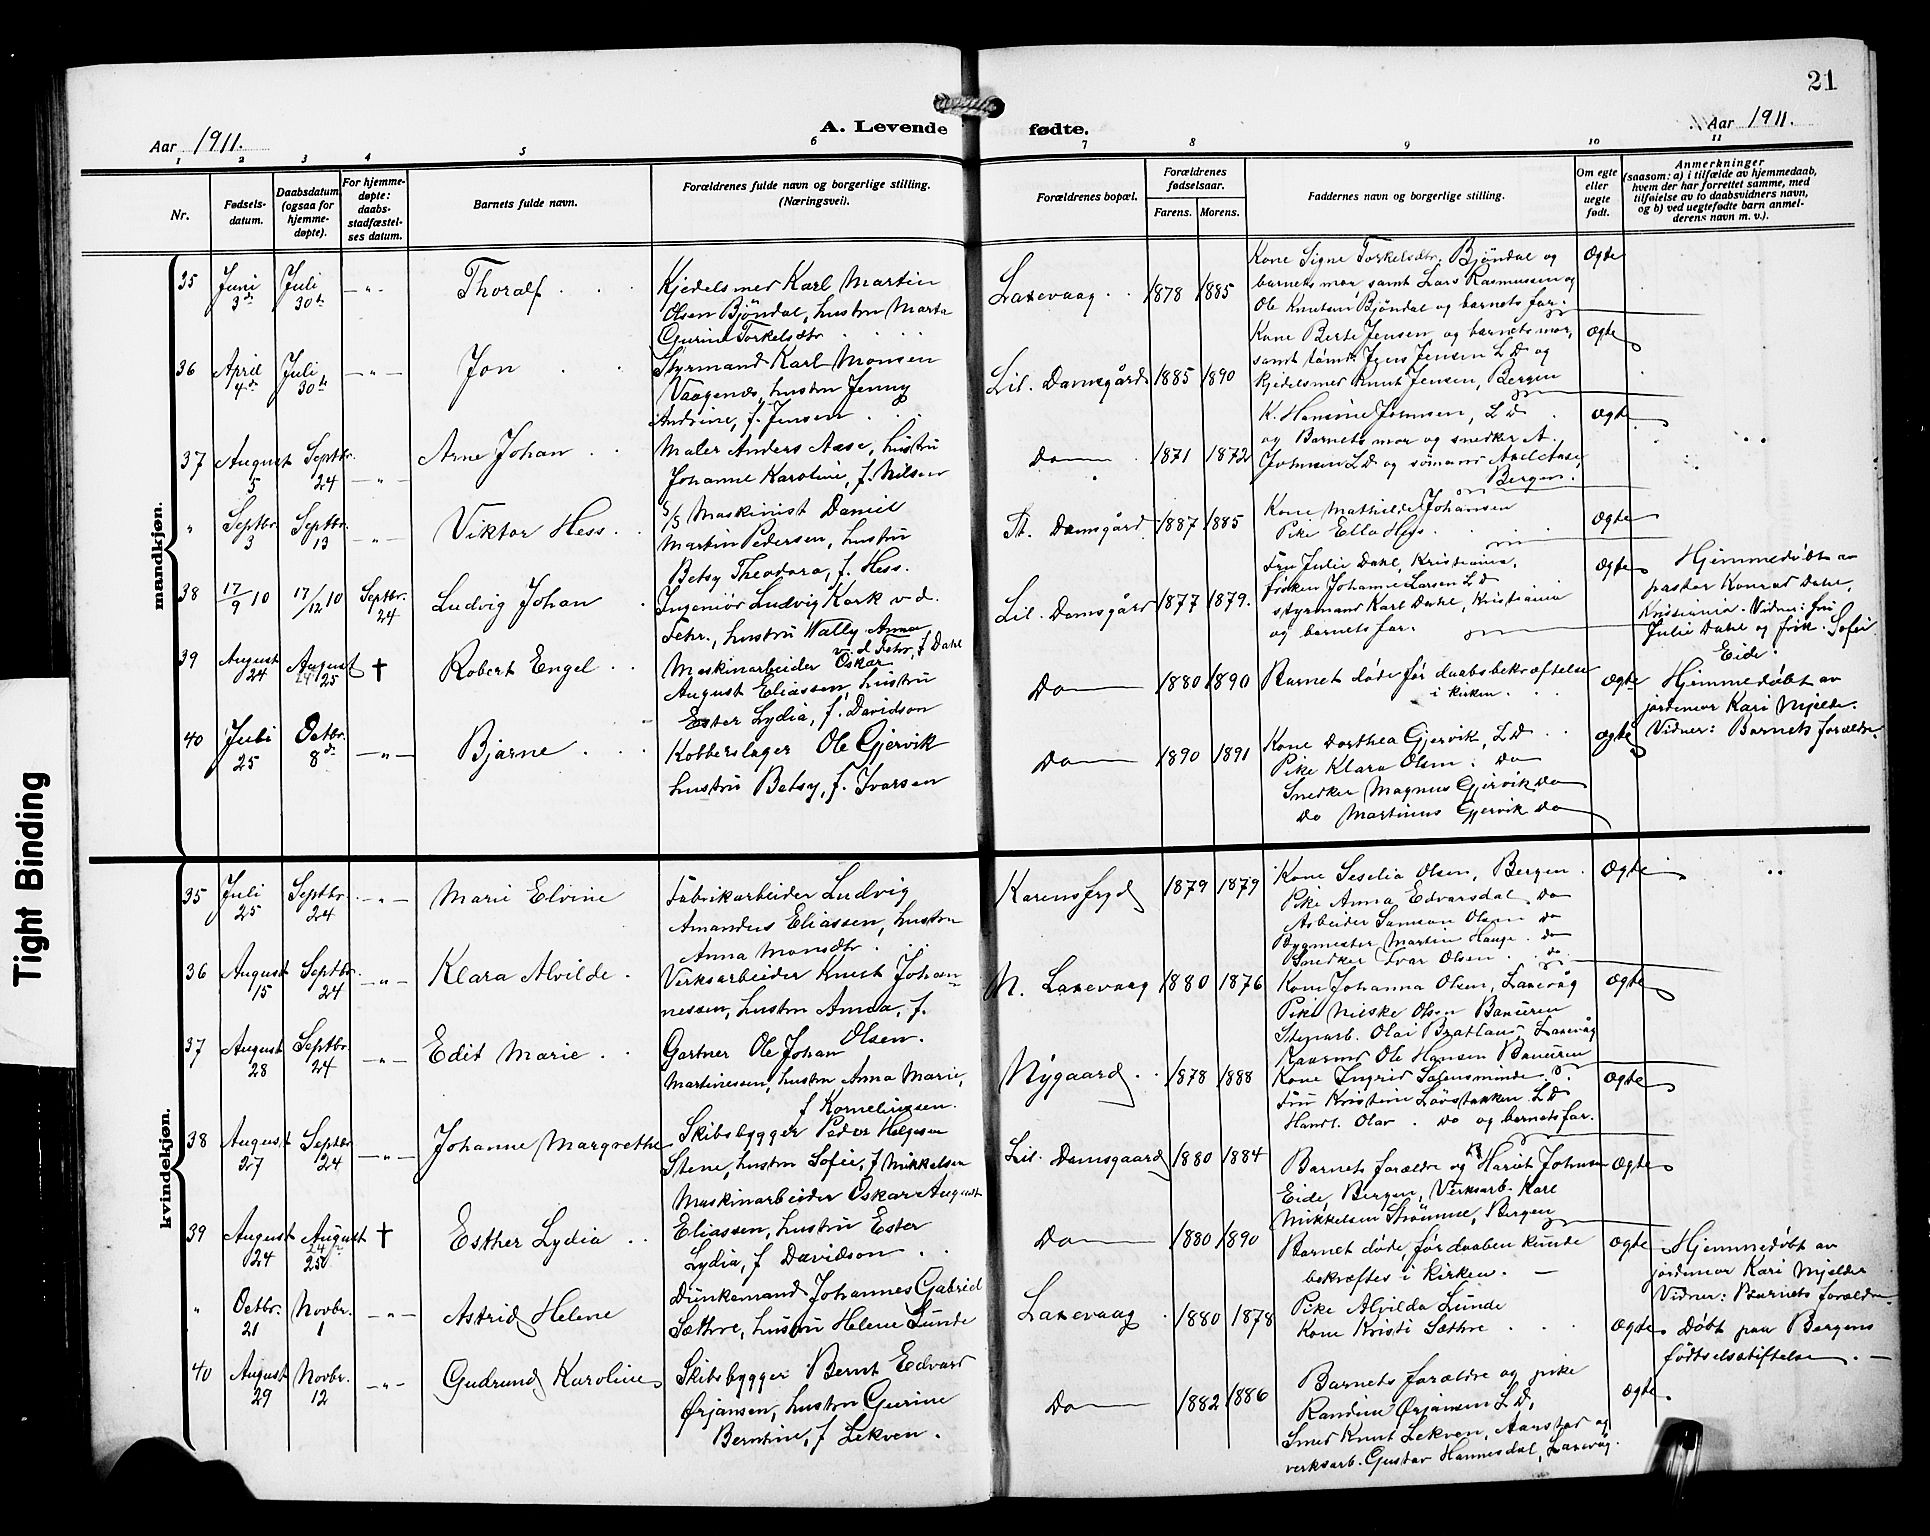 21
Aar 1911.
A. Levende fødte.
Aar 1911.
1 2 3 4 5 6 7 8 9 10 11
Nr.
Fødsels-
datum.
Daabsdatum
(ogsaa for
hjemme-
døpte).
For hjemme-
døpte:
daabs-
stadfæstel-
ses datum.
Barnets fulde navn.
Forældrenes fulde navn og borgerlige stilling.
(Næringsvei).
Forældrenes bopæl.
Forældrenes
fødselsaar.
Farens. Morens.
Faddernes navn og borgerlige stilling.
Om egte
eller
uegte
født.
Anmerkninger
(saasom: a) i tilfælde av hjemmedaab,
hvem der har forrettet samme, med
tilføielse av to daabsvidners navn,
og b) ved uegtefødte barn anmel-
derens navn m. v.).
mandkjøn.
35 Juni 3d Juli 30te — " — Thoralf
Kjedelsmed Karl Martin
Olsen Bjöndal, hustru Marta
Gurine Torkelsdtr.
Laxevaag 1878 1885
Kone Signe Torkelsdtr. Bjöndal og
barnets mor samt Lars Rasmussen og
Ole Knutsen Bjöndal og barnets far.
Ægte
36 April 4d Juli 30te — " — Jon
Styrmand Karl Monsen
Vaagenes, hustru Jenny
Andrine, f. Jensen
Lil. Damsgård 1885 1890
Kone Berte Jensen og barnets mor,
samt tömr. Jens Jensen LD og
Kjedelsmed Knut Jensen, Bergen
Ægte
37 August 5 Septbr. 24 — " — Arne Johan
Maler Anders Aase, hustru
Johanne Karoline, f. Nilsen
Do 1871 1872
K. Hansine Johnsen, LD
og Barnets mor og snedker A.
Johnsen LD og sømand Axel Aase,
Bergen.
Ægte
" Septbr. 3 Septbr. 13 — " — Viktor Hess
Maskinist Daniel
Martin Pedersen, hustru
Betsy Theodora, f. Hess.
St. Damsgård 1887 1885
Kone Mathilde Johansen
Pike Ella Hess.
Ægte
38 17/9 10 17/12 10 Septbr. 24 Ludvig Johan
Ingeniör Ludvig Kark v. d.
Fehr., hustru Wally Anna
v. d. Fehr, f Dahl
Lil. Damsgård 1877 1879.
Fru Julie Dahl, Kristiania,
fröken Johanne Larsen LD
styrmand Karl Dahl, Kristiania
og barnets far.
Ægte
Hjemmedöbt av
pastor Konrad Dahl,
Kristiania. Vidner: fru
Julie Dahl og frk. Sofie
Eide.
39 August 24 August 24 25 † Robert Engel
Maskinarbeider Oskar
August Eliassen, hustru
Ester Lydia, f. Davidson
Do 1880 1890
Barnet döde för daabsbekræftelse
i kirken.
Ægte
Hjemmedöbt av
jordemor Kari Mjelde.
Vidner: Barnets forældre.
40 Juli 25 Octbr. 8d — " — Bjarne
Kobberslager Ole Gjervik
hustru Betsy, f. Ivarsen
Do 1890 1891
Kone Dorthea Gjervik, LD
Pike Klara Olsen. Do
Snedker Magnus Gjervik Do
Do Martinus Gjervik Do
Ægte
kvindekjøn.
35 Juli 25 Septbr. 24 — " — Marie Elvine
Fabrikarbeider Ludvig
Amandus Eliassen, hustru
Anna Monsdtr.
Karensfryd 1879 1879
Kone Seselia Olsen, Bergen
Pike Anna Edvarsdal Do
Arbeider Samson Olsen Do
Bygmester Martin Hauge. Do
Snedker Ivar Olsen Do
Ægte
36 August 15 Septbr. 24 — " — Klara Alvilde
Verksarbeider Knut Johan-
nessen, hustru Anna, f.
Olsen.
N. Laxevaag 1880 1876
Kone Johanna Olsen, Laxevåg
Pike Nilske Olsen
Stenarb. Olai Bratland Laxevåg
Ole Hansen
Ægte
37 August 28 Septbr. 24 — " — Edit Marie
Gartner Ole Johan
Martinessen, hustru Anna Marie,
f Korneliussen.
Nygaard 1878 1888
Kone Ingrid
Fru Kristine Lövstakken LD
Handl. Olav Do og barnets far.
Ægte
38 August 27 Septbr. 24 — " — Johanne Margrethe
Skibsbygger Peder Helgesen
Stene, hustru Sofie, f Mikkelsen
Lil. Damsgaard 1880 1884
Barnets forældre og Hariet Johnsen
Eide, Bergen, Verksarb. Karl
Mikkelsen Strömme, Bergen
Ægte
39 August 24 August 24 25 † Esther Lydia
Maskinarbeider Oskar August
Eliassen, hustru Ester
Lydia, f Davidson
Do 1880 1890
Barnet döde, för daaben kunde
bekræftes i kirken.
Ægte
Hjemmedöbt av
jordemor Kari Mjelde
Vidner: Barnets forældre
" Octbr. 21 Novbr. 1 — " — Astrid Helene
Dunkemand Johannes Gabriel
Sæthre, hustru Helene Lunde
Laxevaag 1880 1878
Pike Alvilda Lunde
Kone Kristi Sæthre
Ægte
Döbt paa Bergens
födtselsstiftelse.
40 August 29 Novbr. 12 — " — Gudrund Karoline
Skibsbygger Bernt Edvard
Ørjansen, hustru Gurine
Berntine, f Lekven.
Do 1882 1886
Barnets forældre og pike
Randine Ørjansen LD,
Smed Knut Lekven, Aarstad og
verksarb. Gustav Hannesdal, Laxevåg.
Ægte
Tight Binding